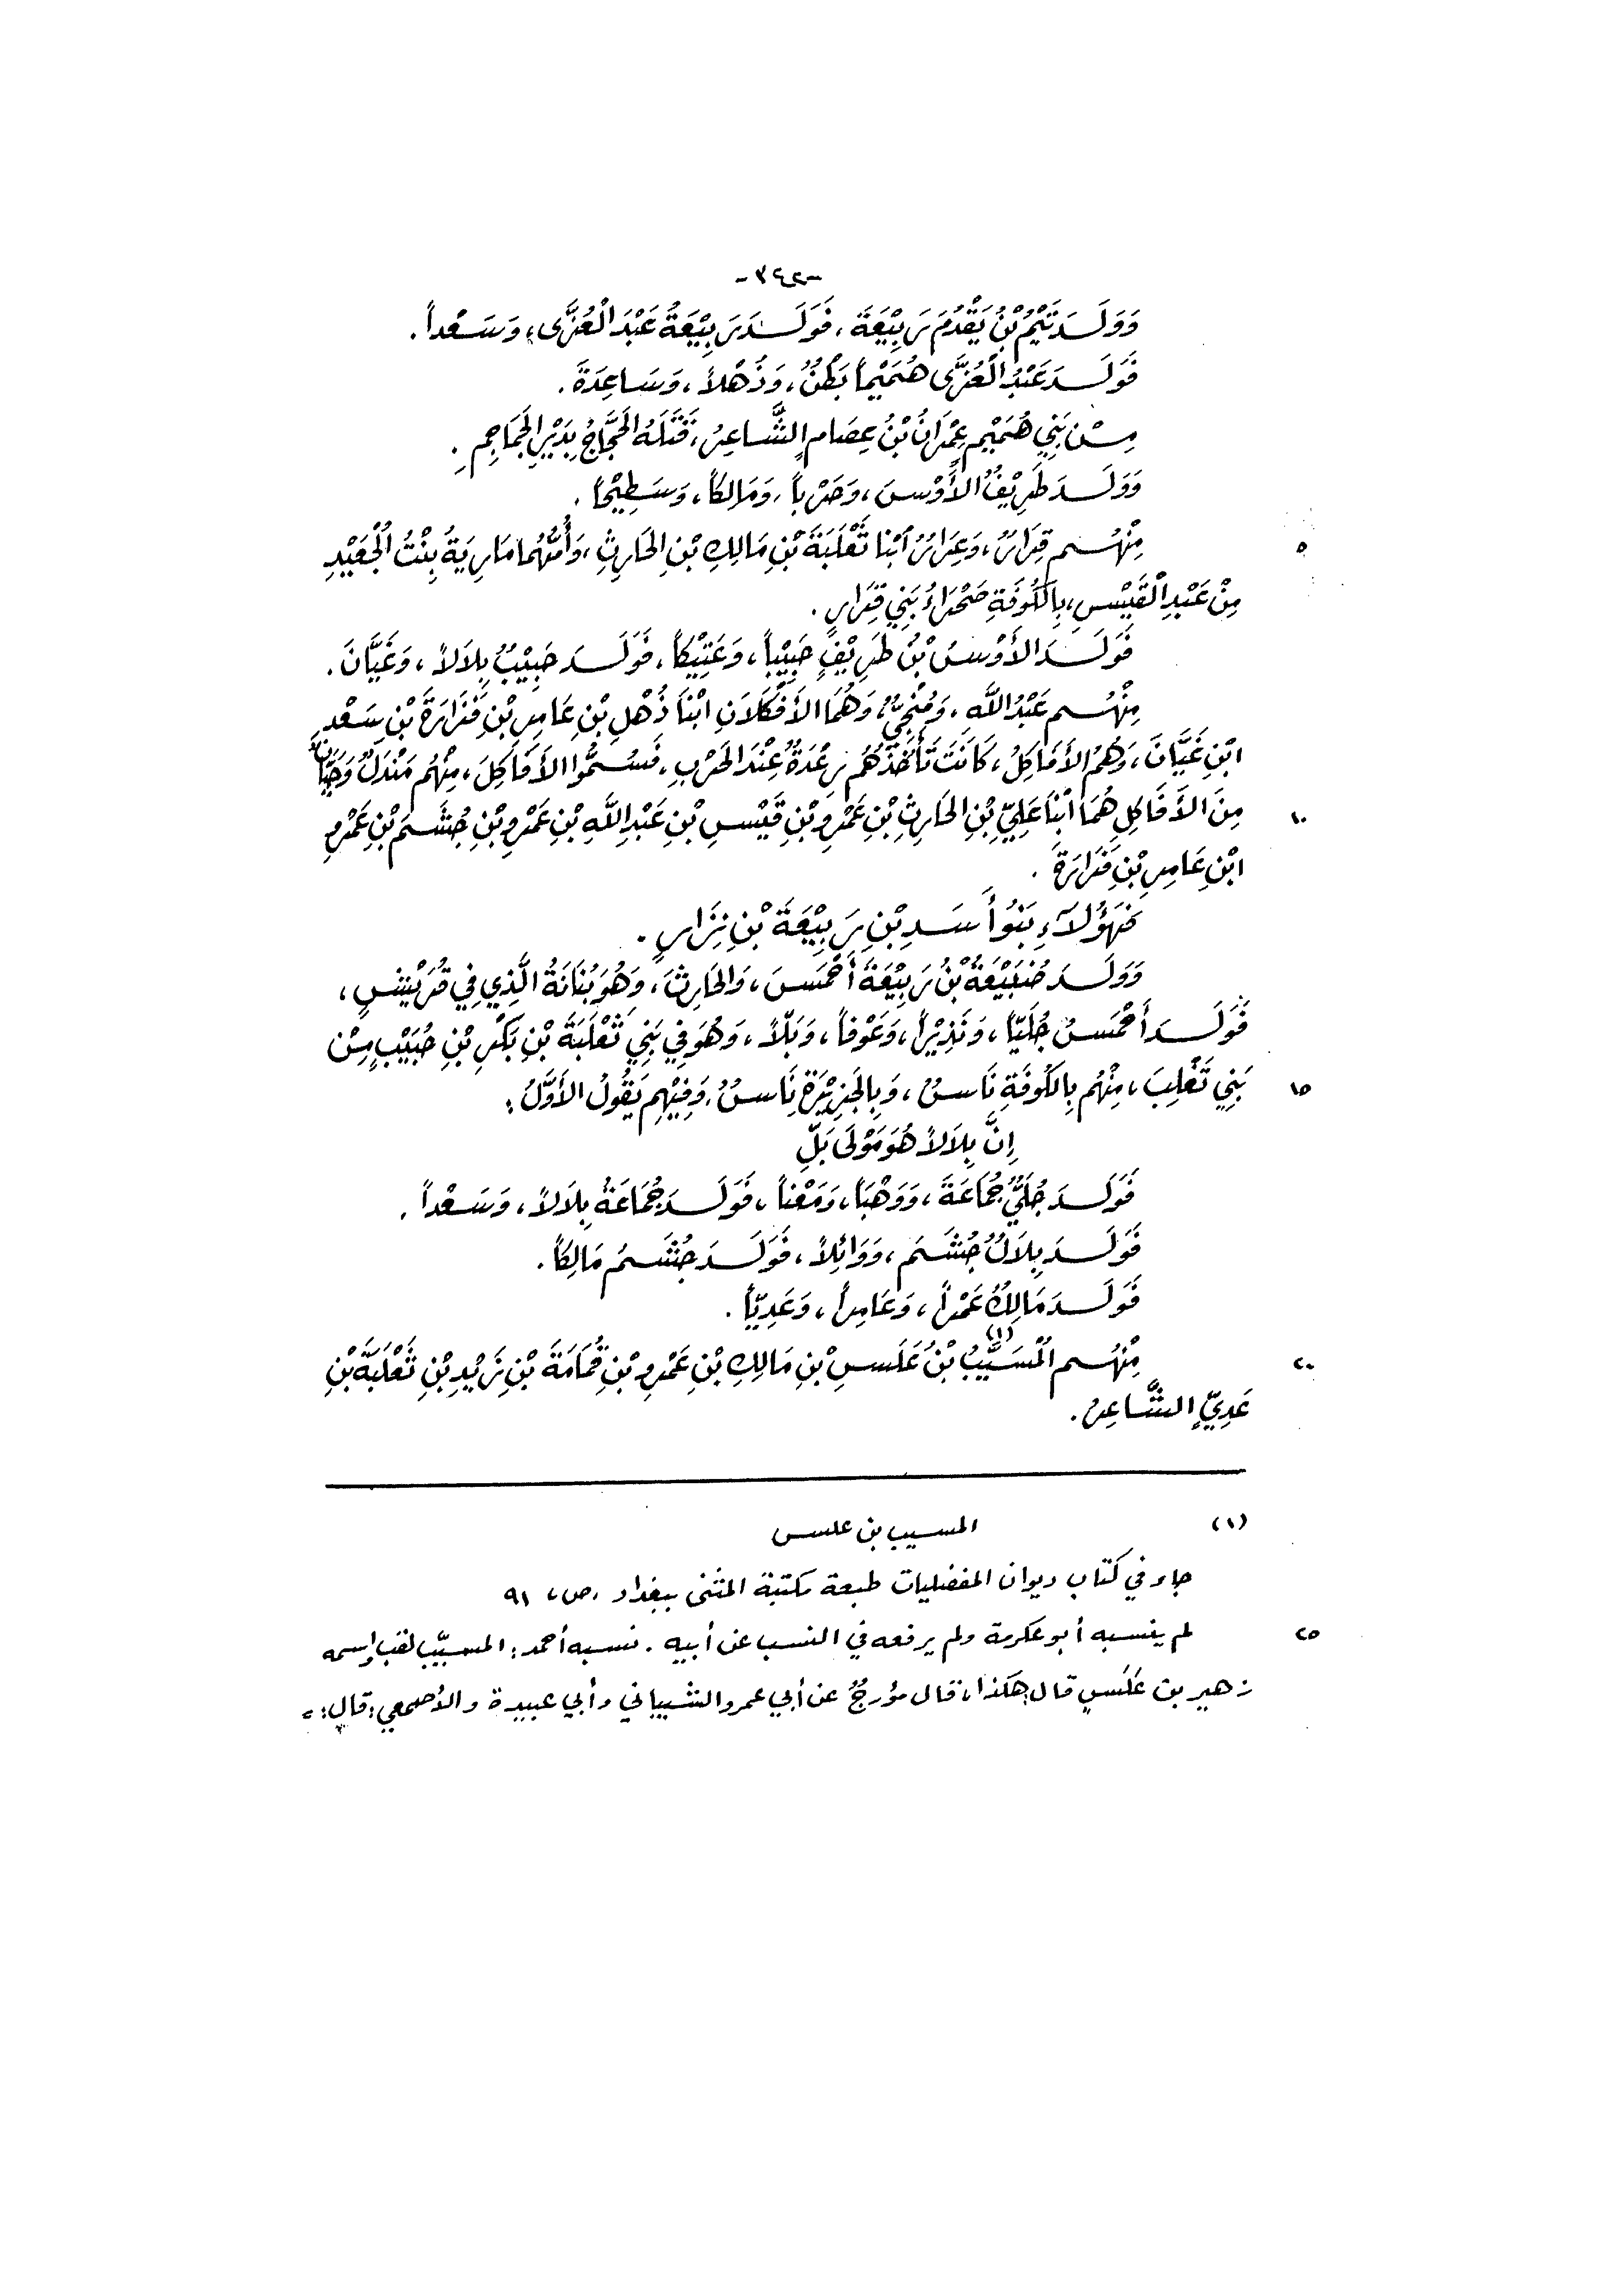 -٣٤٢-
وَوَلَـدَ تَيْمُ بْنُ يَقْدُمَ رَبِيْعَةَ، فَوَلَـدَ رَبِيْعَةُ عَبْدَ الْعُزَّى، وَسَـعْداً.
فَوَلَـدَ عَبْدُ الْعُزَّى هُمَيْماً بَطْنٌ، وَذُهْلاً، وَسَاعِدَةَ.
مِـنْ بَنِي هُمَيْمٍ عِمْرَانُ بْنُ عِصَامٍ الشَّـاعِرُ، قَتَلَهُ الحَجَّاجُ بِدَيْرِ الجَمَاجِمِ.
وَوَلَـدَ طَرِيْفٌ الأَوْسَ، وَحَرْباً، وَمَالِكاً، وَسَـطِيْحاً.
٥ مِنْهُـم قِرَارٌ، وَعِرَارٌ ابْنَا ثَعْلَبَةَ بْنِ مَالِكِ بْنِ الحَارِثِ، وَأُمُّهُمَا مَارِيَةُ بِنْتُ الْجُعَيْدِ
مِنْ عَبْدِ الْقَيْسِ، بِالكُوفَةِ صَحْرَاءُ بَنِي قِرَارٍ.
فَوَلَـدَ الأَوْسُ بْنُ طَرِيْفٍ حَبِيْباً، وَعَتِيْكاً، فَوَلَـدَ حَبِيْبٌ بِلَالاً، وَغَيَّانَ.
مِنْهُـم عَبْدُ اللَّهِ، وَمُنْجِيٌّ، وَهُمَا الأَفْكَلَانِ ابْنَا ذُهْلِ بْنِ عَامِرِ بْنِ فَزَارَةَ بْنِ سَعْدِ
ابْنِ غَيَّانَ، وَهُمُ الأَفَاكِلُ، كَانَتْ تَأْخُذُهُم رِعْدَةٌ عِنْدَ الحَرْبِ، فَسُـمُّوا الأَفَاكِلَ، مِنْهُم مَنْدَلٌ وَحِبَّانُ
١٠ مِنَ الأَفَاكِلِ هُمَا ابْنَا عَلِيِّ بْنِ الحَارِثِ بْنِ عَمْرِو بْنِ قَيْسِ بْنِ عَبْدِ اللَّهِ بْنِ عَمْرِو بْنِ جُشَـمَ بْنِ عَمْرِو
ابْنِ عَامِرِ بْنِ فَزَارَةَ.
فَهَؤُلَآءِ بَنُو أَسَـدِ بْنِ رَبِيْعَةَ بْنِ نِزَارٍ.
وَوَلَـدَ ضُبَيْعَةُ بْنُ رَبِيْعَةَ أَحْمَسَ، وَالحَارِثَ، وَهُوَ بُنَانَةُ الَّذِي فِي قُرَيْشٍ،
فَوَلَـدَ أَحْمَسُ جُلَيّاً، وَنَذِيْراً، وَعَوْفاً، وَبَلّاً، وَهُوَ فِي بَنِي ثَعْلَبَةَ بْنِ بَكْرِ بْنِ حُبَيْبٍ مِـنْ
١٥ بَنِي تَغْلِبَ، مِنْهُم بِالكُوفَةِ نَاسٌ، وَبِالجَزِيْرَةِ نَاسٌ، وَفِيْهِم يَقُولُ الأَوَّلُ:
إِنَّ بِلَالاً هُوَ مَوْلَى بَلِّ
فَوَلَـدَ جُلَيٌّ جُمَاعَةَ، وَوَهْباً، وَمَعْناً، فَوَلَـدَ جُمَاعَةُ بِلَالاً، وَسَـعْداً.
فَوَلَـدَ بِلَالٌ جُشَـمَ، وَوَائِلاً، فَوَلَـدَ جُشَـمُ مَالِكاً.
فَوَلَـدَ مَالِكٌ عَمْراً، وَعَامِراً، وَعَدِيّاً.
٢٠ مِنْهُـم الْمُسَيَّبُ (١) بْنُ عَلَسِ بْنِ مَالِكِ بْنِ عَمْرِو بْنِ قُمَامَةَ بْنِ زَيْدِ بْنِ ثَعْلَبَةَ بْنِ
عَدِيٍّ الشَّـاعِرُ.
(١) المسيب بن علس
جاء في كتاب ديوان المفضليات طبعة مكتبة المثنى ببغداد، ص، ٩١
٢٥ لم ينسبه أبو عكرمة ولم يرفعه في النسب عن أبيه. نسبه أحمد: المسيّب لقب واسمه
زهير بن عَلَسٍ قال: هكذا، قال مؤرجٌ عن أبي عمرو الشيباني وأبي عبيدة والأصمعي: قال: =